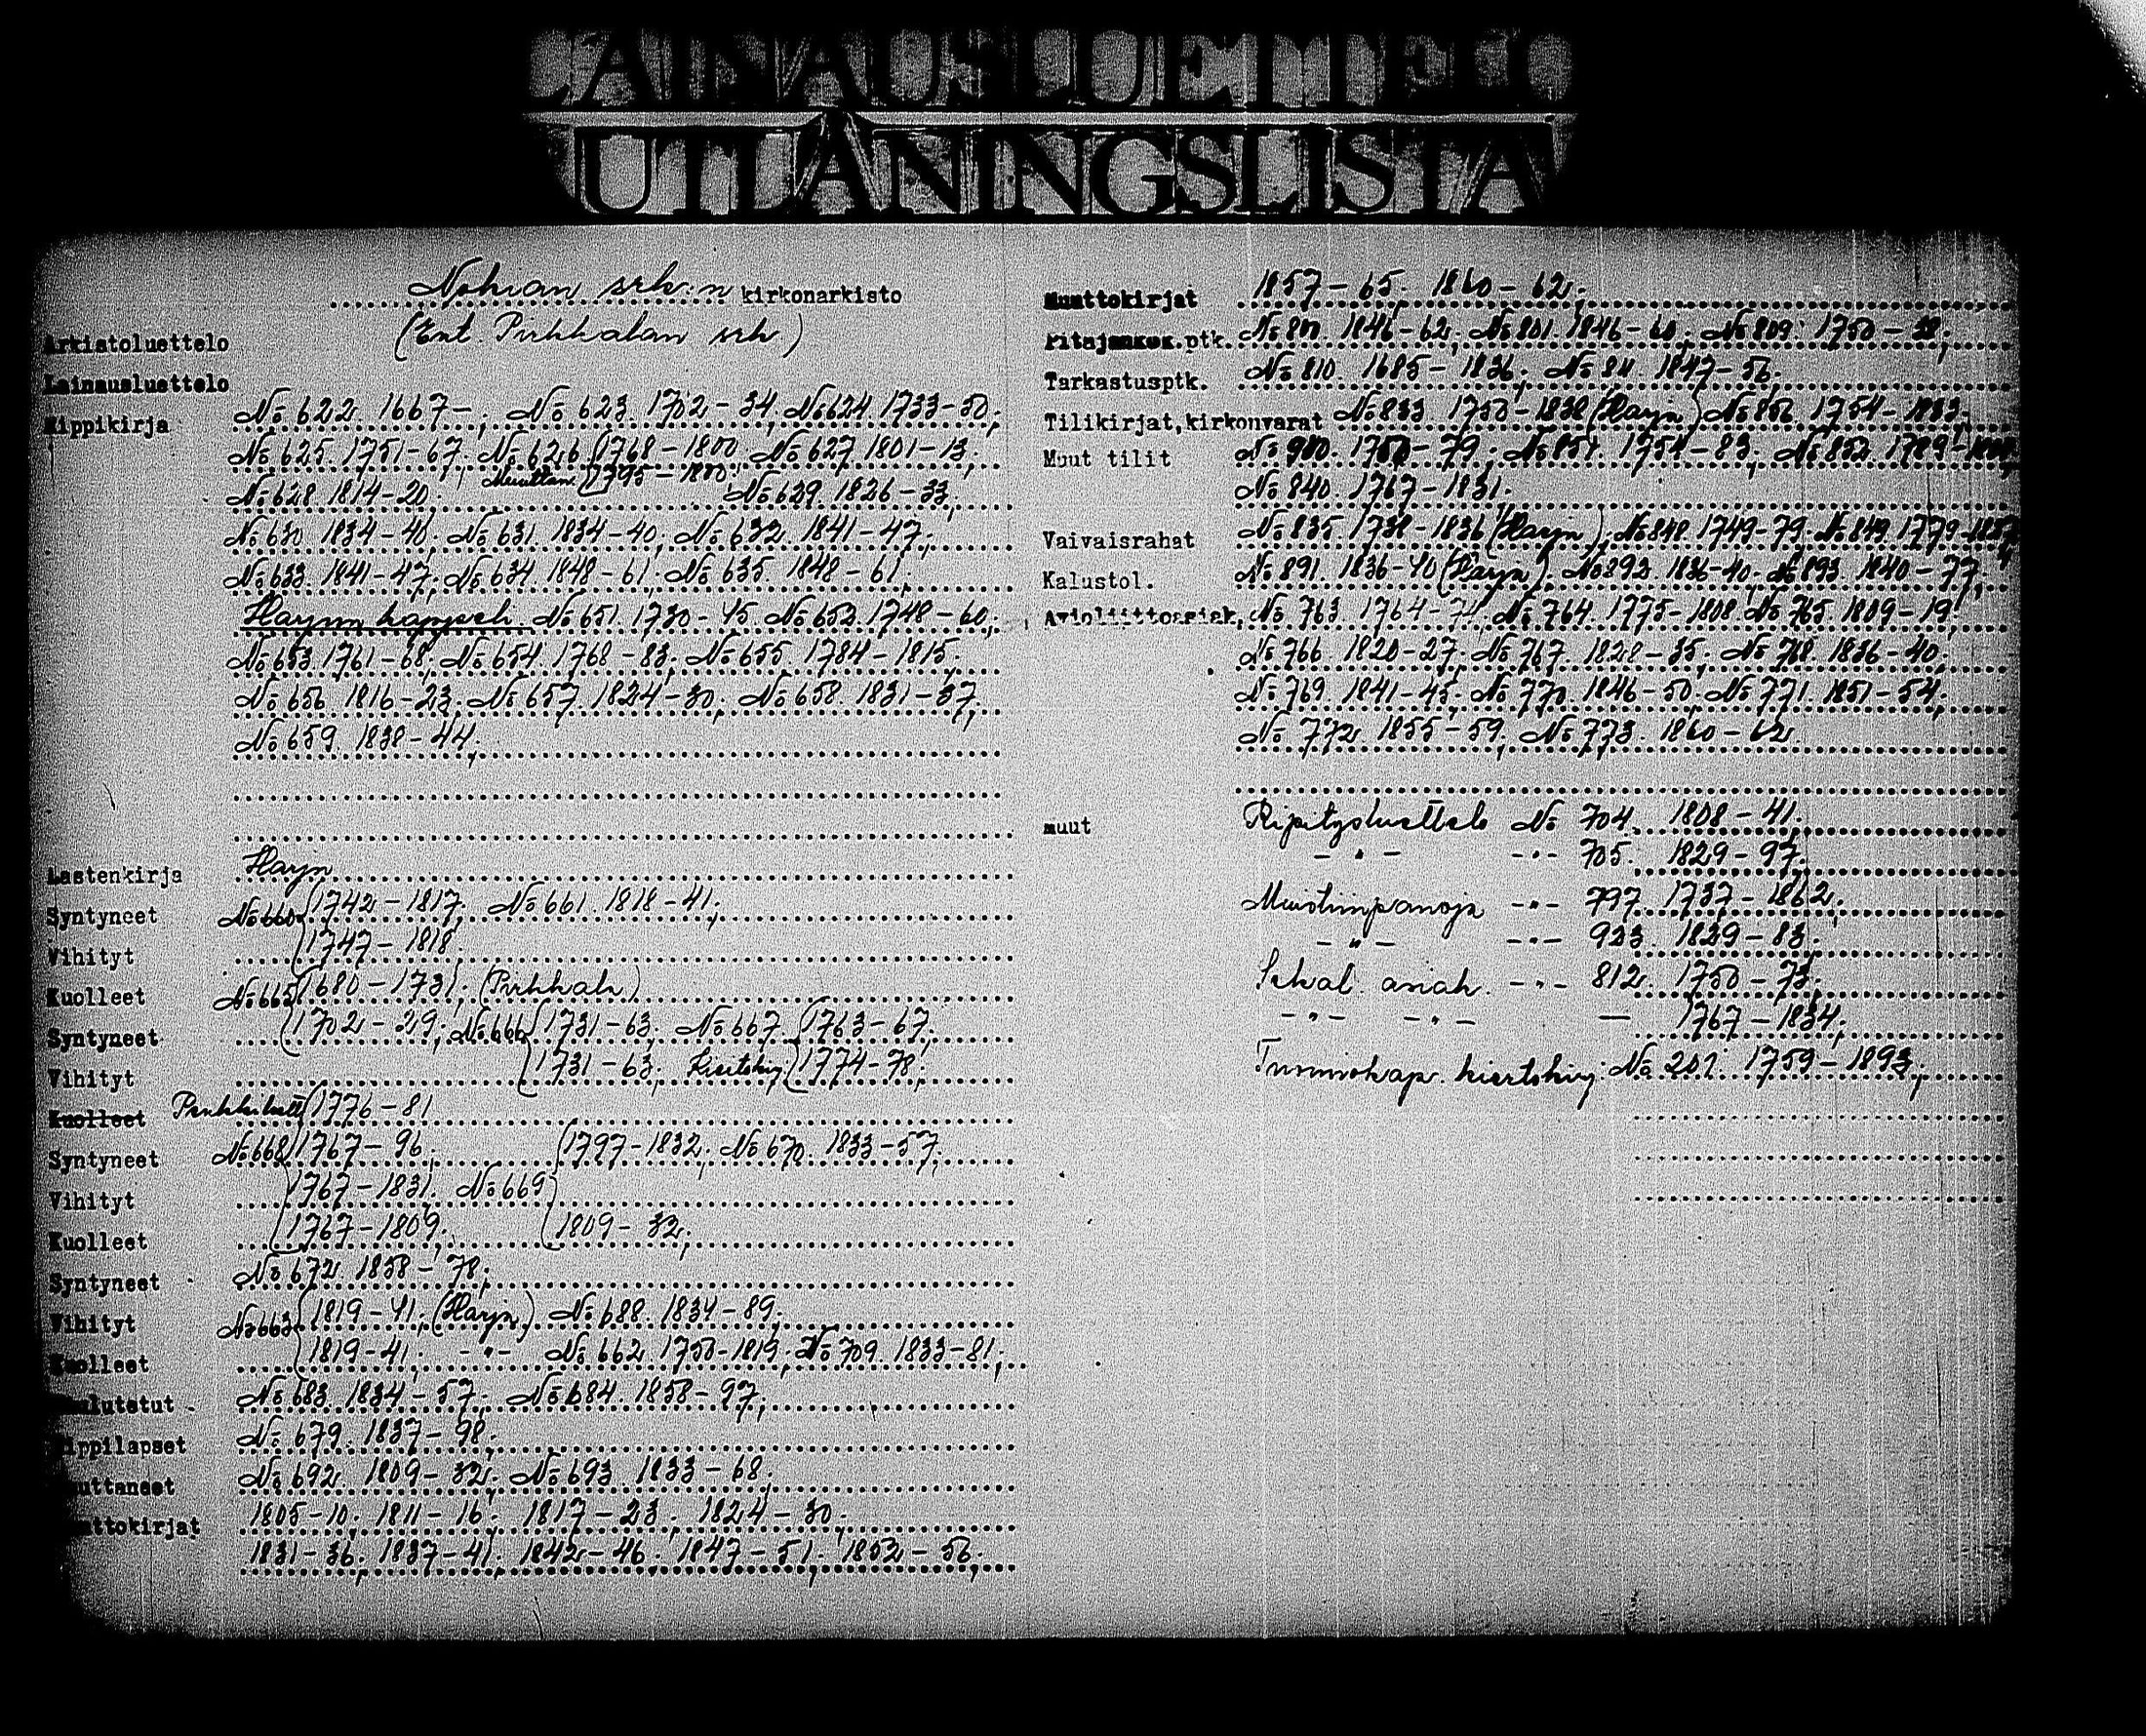 LAINAUSLUETTELO
UTLÅNINGSLISTA
Nokian srk:n kirkonarkisto
(Ent. Pirkkalan srk)
Arkistoluettelo
Lainausluettelo
Rippikirja No 622. 1667-; No 623. 1702-34; No 624. 1733-50;
No 625. 1751-67; No 626 {1768-1800; No 627. 1801-13;
Muuttan. {1795-1800;
No 628. 1814-20; No 629. 1826-33;
No 630 1834-40; No 631. 1834-40; No 632. 1841-47;
No 633. 1841-47; No 634. 1848-61; No 635. 1848-61,
Harjun kappseh. No 651. 1730-45 No 652. 1748-60,
No 653. 1761-68; No 654. 1768-83; No 655. 1784-1815;
No 656. 1816-23; No 657. 1824-30; No 658. 1831-37;
No 659. 1838-44;
Lastenkirja Harju
Syntyneet No 660 {1742-1817; No 661. 1818-41;
Vihityt {1747-1818.
Kuolleet No 665 {1680-1731; (Pirkkala)
Syntyneet {1702-29; No 666 {1731-63; No 667. {1763-67;
Vihityt {1731-63; Kiertokirj. {1774-78;
Kuolleet {1776-81
Syntyneet No 668 {1767-96; {1797-1832; No 670. 1833-57;
Vihityt {1767-1831. No 669
Kuolleet {1767-1809; {1809-32;
Syntyneet No 672. 1858-78;
Vihityt No 663 {1819-41; (Harju) No 688. 1834-89;
Kuolleet {1819-41; -"- No 662. 1750-1819; No 709. 1833-81;
Kuulutetut No 683. 1834-57; No 684. 1858-97;
Rippilapset No 679. 1837-98;
Muuttaneet No 692. 1809-32; No 693. 1833-68;
Muuttokirjat 1805-10; 1811-16; 1817-23; 1824-30;
1831-36; 1837-41; 1842-46; 1847-51; 1852-56;
Muuttokirjat 1857-65; 1860-62;
Pitäjänkok.ptk. 1846-62; No 801. 1846-60; No 809.
Tarkastusptk. No 810. 1685-1836; 1847-56.
Tilikirjat,kirkonvarat No 833. 1750-1838 (Harju) 1754-1833;
Muut tilit No 900. 1750-79; No 851. 1754-83; No 852.
No 840. 1767-1831.
Vaivaisrahat No 835. 1738-1836 (Harju); No 848. 1749-79; No 849. 1779-1857
Kalustol. No 891. 1836-40 (Harju); No 892. 1836-40; No 893. 1840-77;
Avioliittoasiak. No 763. 1764-74; No 764. 1775-1808 No 765. 1809-19;
No 766. 1820-27; No 767. 1828-35; No 768. 1836-40;
No 769. 1841-45; No 770. 1846-50; No 771. 1851-54;
No 772. 1855-59; No 773. 1860-62
muut Ripitysluettelo No 704. 1808-41.
-"- -"- 705. 1829-97;
Muistiinpanoja -"- 797. 1737-1862;
-"- -"- 923. 1829-83.
Sekal. asiak. -"- 812. 1750-73;
-"- -"- — 1767-1834;
Tuomiokap. kiertokirj. No 201. 1759-1893;